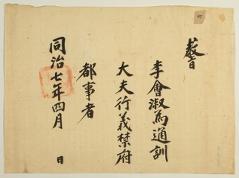 敎旨
李會淑爲通訓
大夫行義禁府
都事者
同治七年四月 日